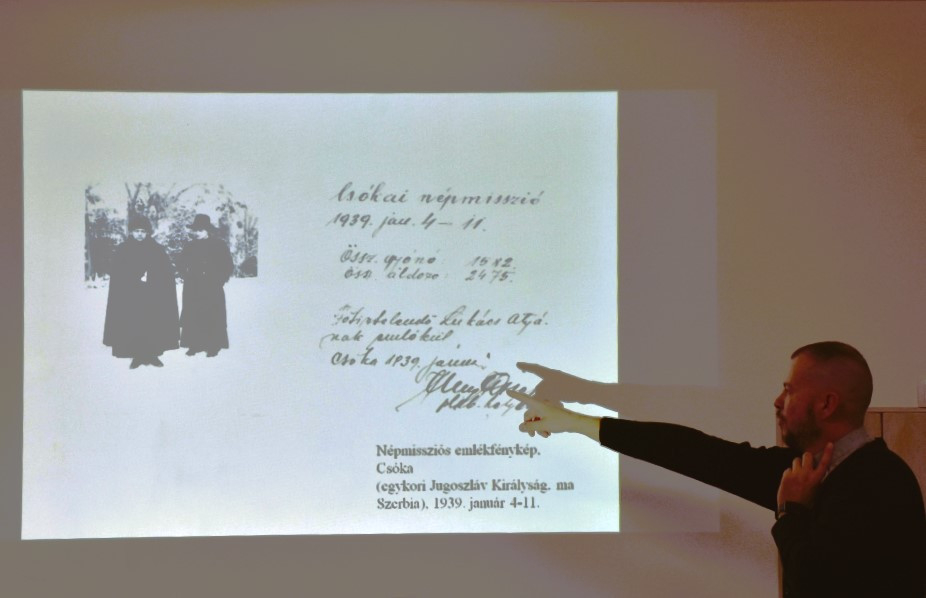 Csókai népmisszió
1939. jan. 4 — 11.
Össz. gyónó:
Össz. áldozó: 2475.
Lukács Atyá-
nak emlékül
Csóka 1939. január
Népmissziós emlékfénykép,
Csóka
(egykori Jugoszláv Királyság, ma
Szerbia), 1939. január 4-11.